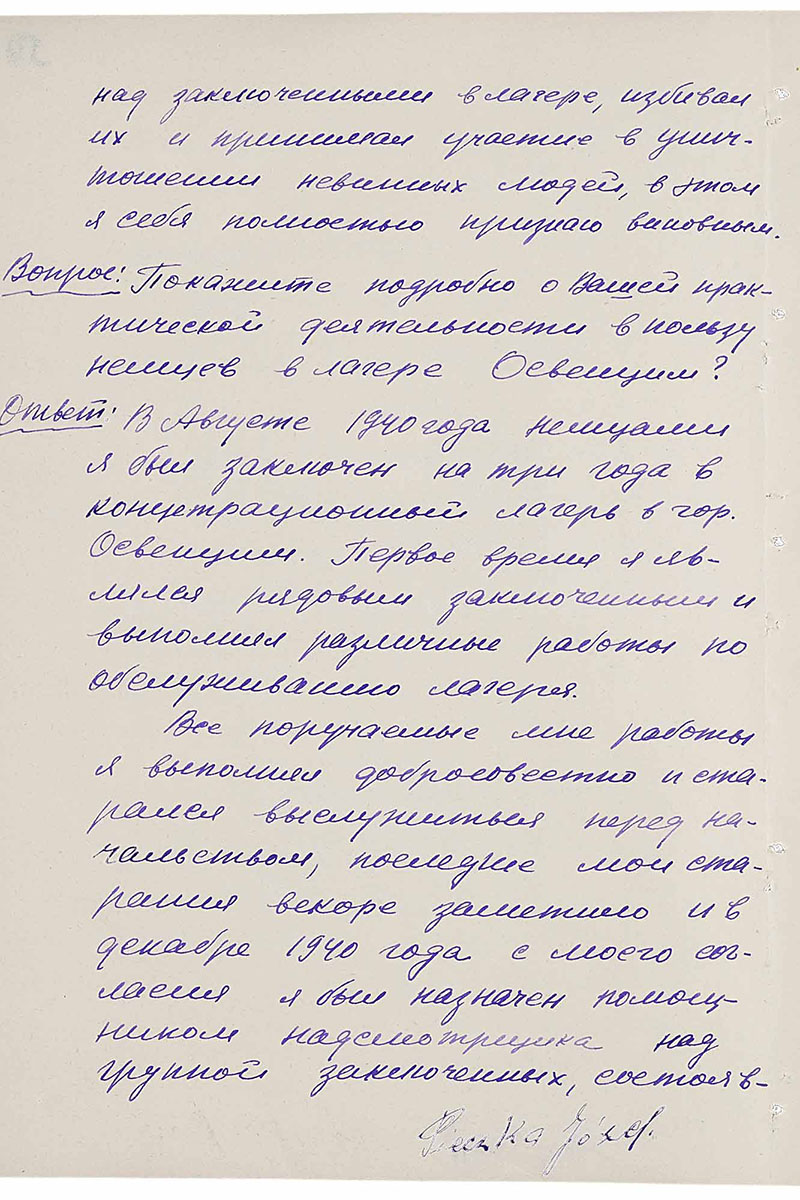 над заключенными в лагере, избивал
их и принимал участие в унич-
тожении невинных людей, в этом
я себя полностью признаю виновным.
Вопрос: Покажите подробно о Вашей прак-
тической деятельности в пользу
немцев в лагере Освенцим?
Ответ: В Августе 1940 года немцами
я был заключен на три года в
концетрационный лагерь в гор.
Освенцим. Первое время я яв-
лялся рядовым заключенным и
выполнял различные работы по
обслуживанию лагеря.
Все поручаемые мне работы
я выполнял добросовестно и ста-
рался выслужиться перед на-
чальством, последние мои ста-
рания вскоре заметило и в
декабре 1940 года с моего сог-
ласия я был назначен помощ-
ником надсмотрщика над
группой заключенных, состояв-
Józef.